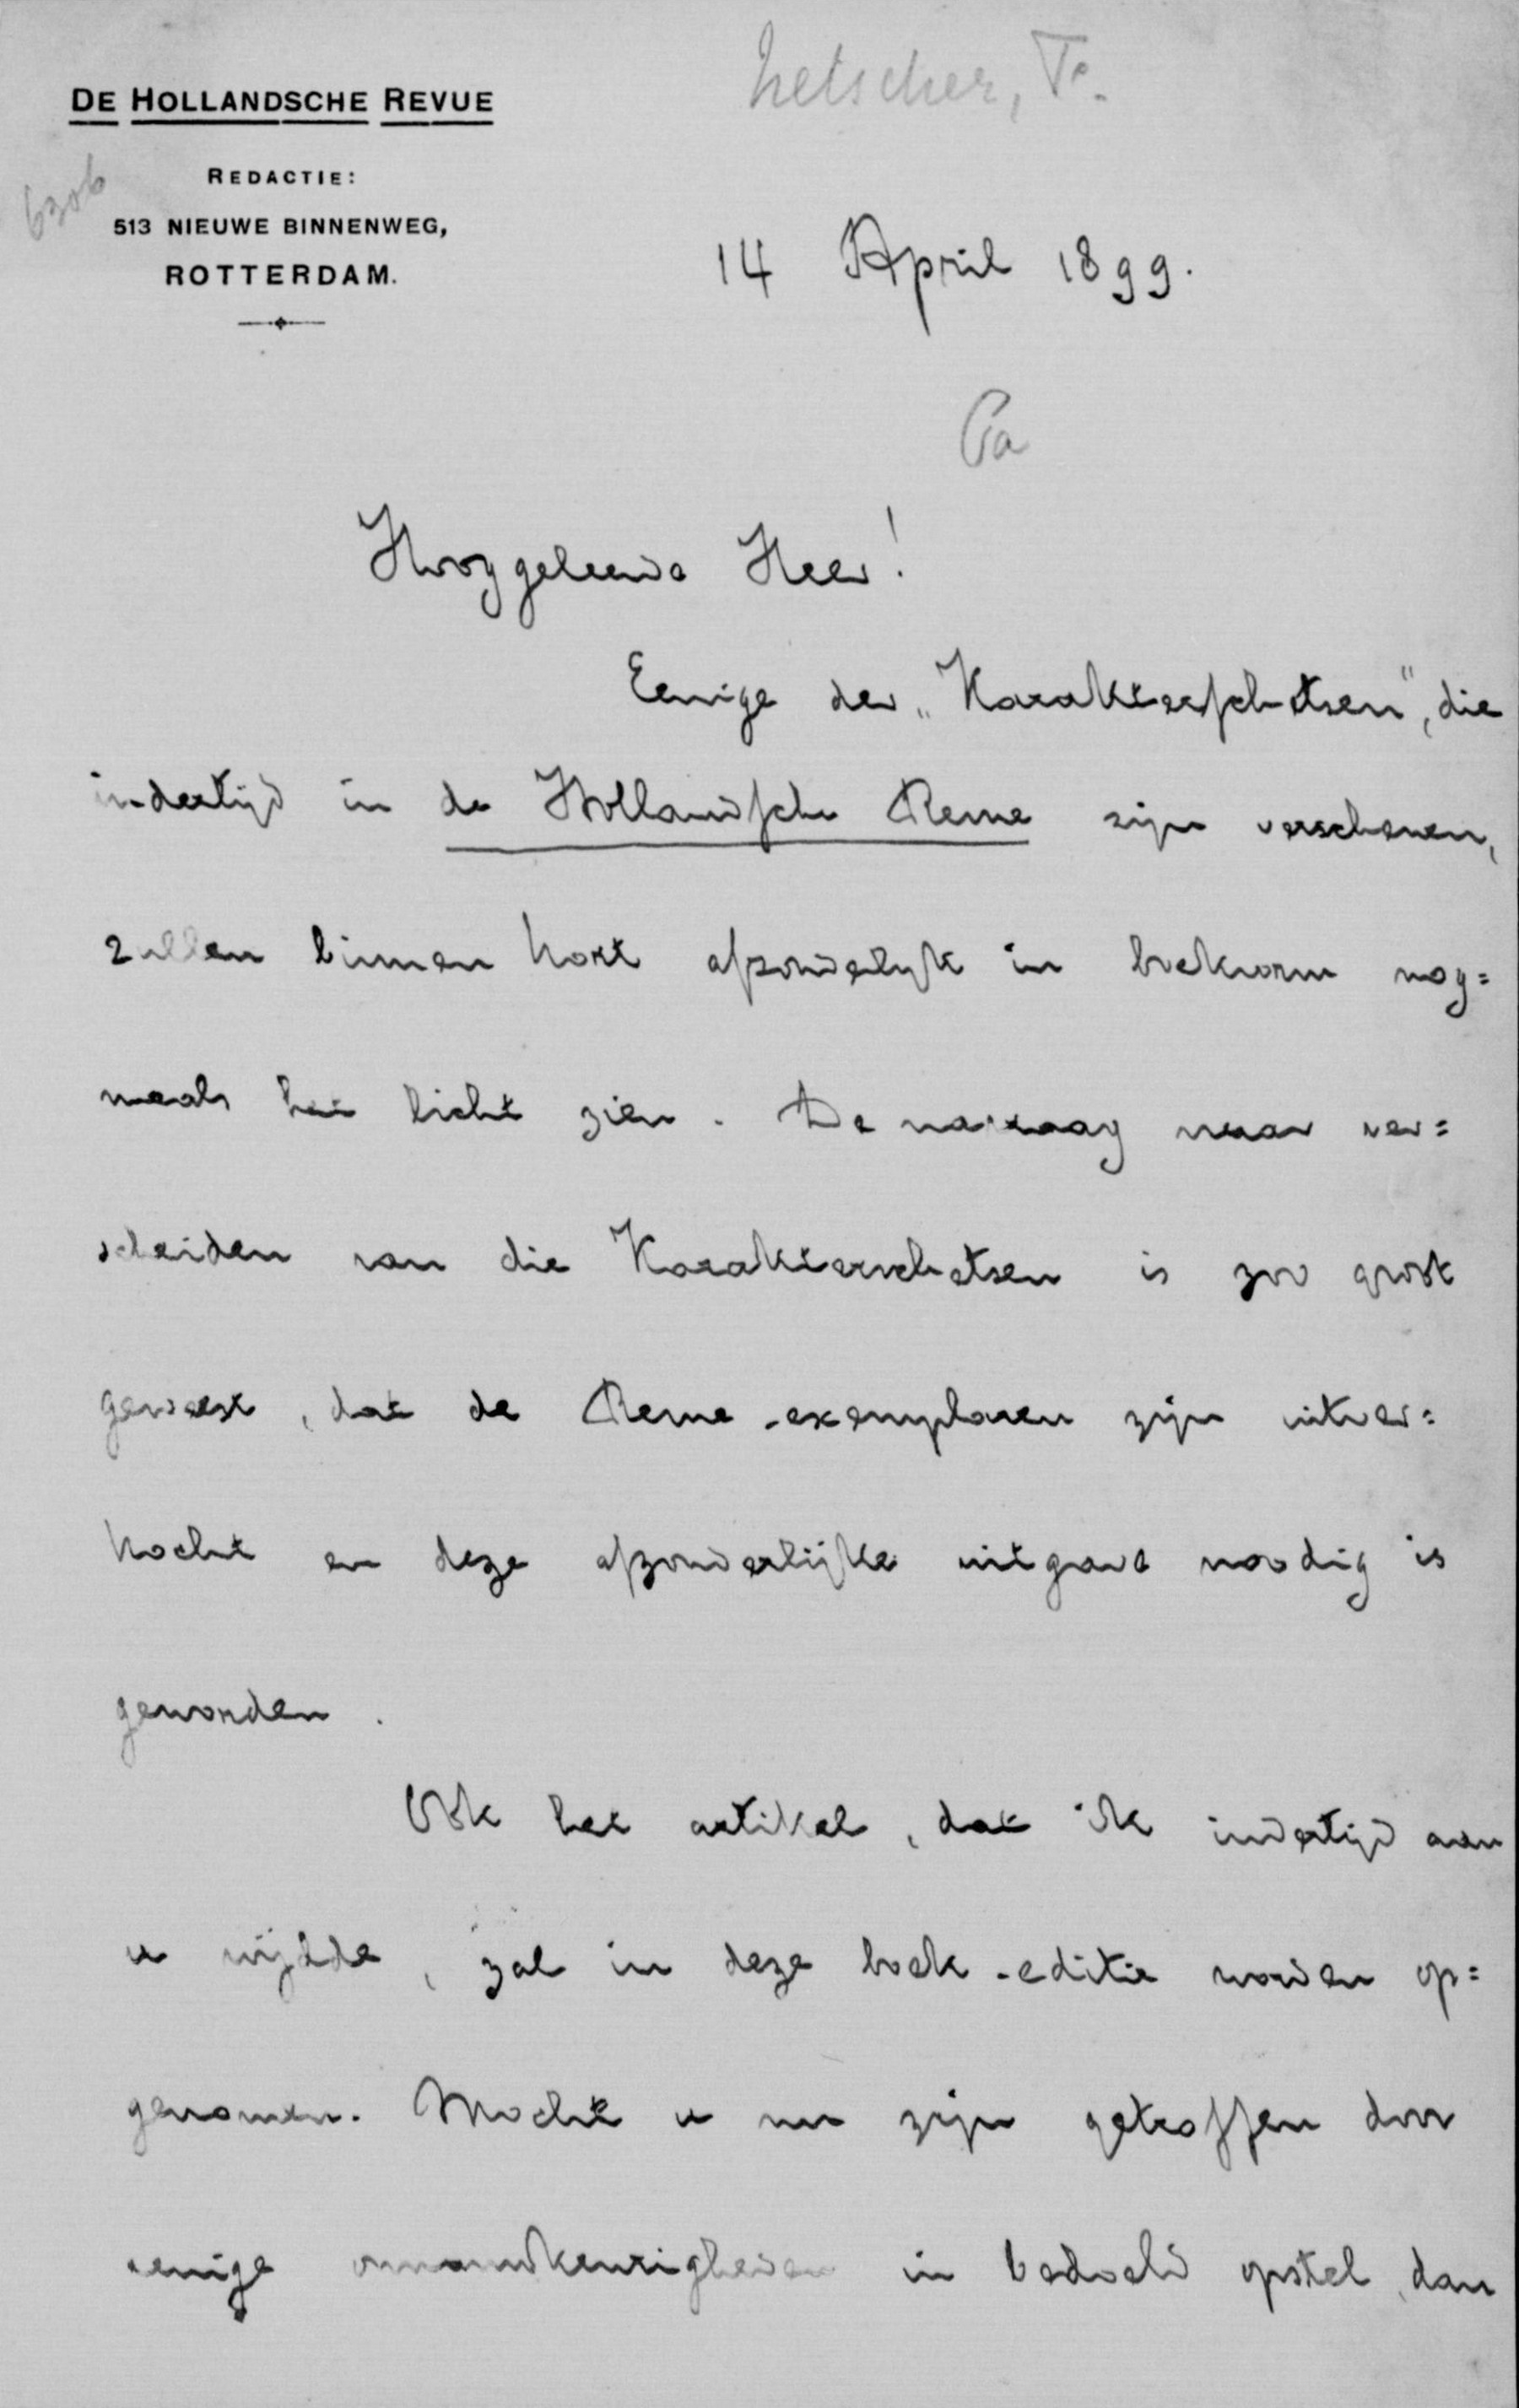 Netscher, F.
DE HOLLANDSCHE REVUE
REDACTIE:
6306
513 NIEUWE BINNENWEG,
ROTTERDAM.
14 April 1899.
Hooggeleerde Heer!
Eenige der „Karakterschetsen", die
indertijd in de Hollandsche Revue zijn verschenen,
zullen binnen kort afzonderlijk in boekvorm nog=
maals het licht zien. De navraag naar ver=
scheiden van die Karakterschetsen is zoo groot
geweest, dat de Revue-exemplaren zijn uitver=
kocht en deze afzonderlijke uitgave noodig is
geworden.
Ook het artikel, dat ik indertijd aan
u wijdde, zal in deze boek-editie worden op=
genomen. Mocht u nu zijn getroffen door
eenige onnauwkeurigheden in bedoeld opstel, dan